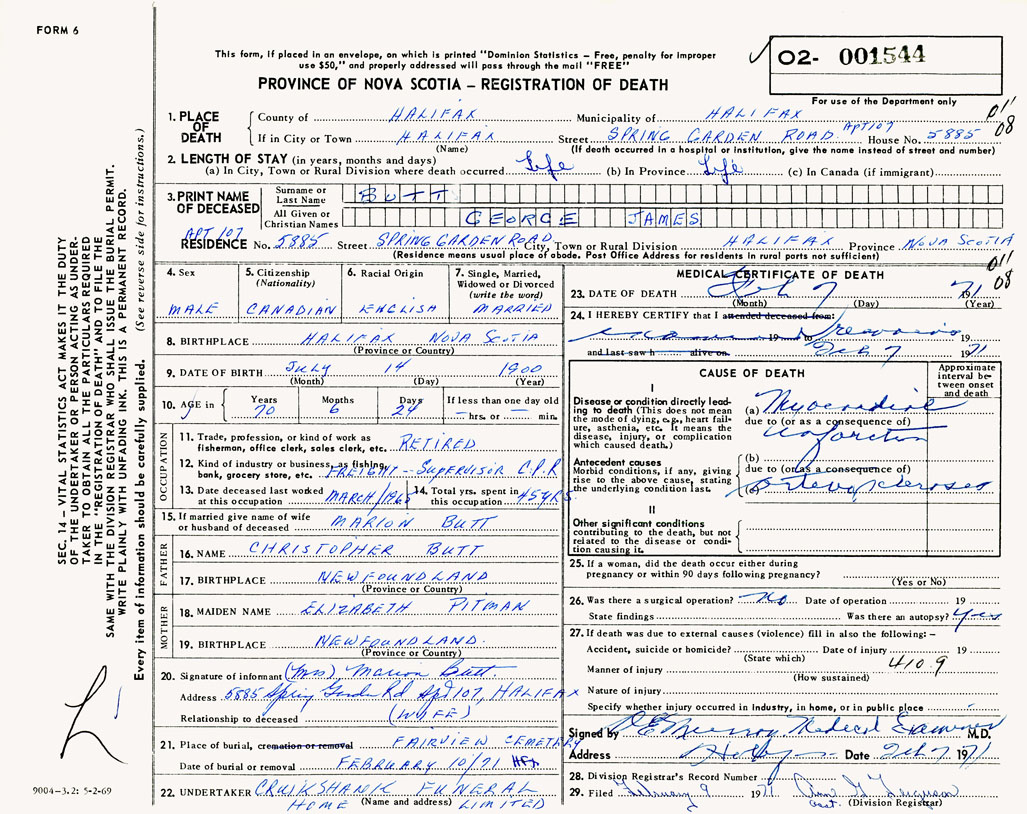 FORM 6
This form, if placed in an envelope, on which is printed "Dominion Statistics – Free, penalty for improper
use $50," and properly addressed will pass through the mail "FREE"
PROVINCE OF NOVA SCOTIA – REGISTRATION OF DEATH
02- 001544
For use of the Department only
011
08
1. PLACE OF DEATH
County of HALIFAX Municipality of HALIFAX
If in City or Town HALIFAX Street SPRING GARDEN ROAD APT 107 House No. 5885
(Name) (If death occurred in a hospital or institution, give the name instead of street and number)
2. LENGTH OF STAY (in years, months and days)
(a) In City, Town or Rural Division where death occurred Life (b) In Province Life (c) In Canada (if immigrant)
3. PRINT NAME OF DECEASED
Surname or Last Name BUTT
All Given or Christian Names GEORGE JAMES
APT 107
RESIDENCE No. 5885 Street SPRING GARDEN ROAD City, Town or Rural Division HALIFAX Province NOVA SCOTIA
(Residence means usual place of abode. Post Office Address for residents in rural parts not sufficient)
4. Sex
MALE
5. Citizenship (Nationality)
CANADIAN
6. Racial Origin
ENGLISH
7. Single, Married, Widowed or Divorced (write the word)
MARRIED
8. BIRTHPLACE HALIFAX NOVA SCOTIA
(Province or Country)
9. DATE OF BIRTH JULY 14 1900
(Month) (Day) (Year)
10. AGE in Years 70 Months 6 Days 24 If less than one day old — hrs. or — min.
OCCUPATION
11. Trade, profession, or kind of work as
fisherman, office clerk, sales clerk, etc. RETIRED
12. Kind of industry or business, as fishing,
bank, grocery store, etc. FREIGHT - SUPERVISOR C.P.R
13. Date deceased last worked at this occupation MARCH/1965
14. Total yrs. spent in this occupation 45 YRS.
15. If married give name of wife
or husband of deceased MARION BUTT
FATHER
16. NAME CHRISTOPHER BUTT
17. BIRTHPLACE NEWFOUNDLAND
(Province or Country)
MOTHER
18. MAIDEN NAME ELIZABETH PITMAN
19. BIRTHPLACE NEWFOUNDLAND.
(Province or Country)
20. Signature of informant (Mrs) Marion Butt.
Address 5885 Spring Garden Rd Apt 107, HALIFAX
Relationship to deceased (WIFE)
21. Place of burial, cremation or removal FAIRVIEW CEMETERY
Date of burial or removal FEBRUARY 10/71 HFX
22. UNDERTAKER CRUIKSHANK FUNERAL
HOME (Name and address) LIMITED
MEDICAL CERTIFICATE OF DEATH
011
08
23. DATE OF DEATH Feb 7 71
(Month) (Day) (Year)
24. I HEREBY CERTIFY that I attended deceased from:
19 to 19
and last saw h alive on Feb 7 1971
CAUSE OF DEATH
Approximate interval between onset and death
I
Disease or condition directly leading to death (This does not mean the mode of dying, e.g., heart failure, asthenia, etc. It means the disease, injury, or complication which caused death.)
(a) Myocardial
due to (or as a consequence of)
infarction
Antecedent causes
Morbid conditions, if any, giving rise to the above cause, stating the underlying condition last.
(b)
due to (or as a consequence of)
(c) arteriosclerosis
II
Other significant conditions
contributing to the death, but not related to the disease or condition causing it.
25. If a woman, did the death occur either during
pregnancy or within 90 days following pregnancy?
(Yes or No)
26. Was there a surgical operation? No Date of operation 19
State findings Was there an autopsy? Yes
27. If death was due to external causes (violence) fill in also the following: –
Accident, suicide or homicide? Date of injury 19
(State which)
Manner of injury 410.9
(How sustained)
Nature of injury
Specify whether injury occurred in industry, in home, or in public place
Signed by Medical Examiner M.D.
Address Date Feb 7 1971
28. Division Registrar's Record Number
29. Filed February 9 1971 Ann G Ferguson
asst. (Division Registrar)
SEC. 14 – VITAL STATISTICS ACT MAKES IT THE DUTY
OF THE UNDERTAKER OR PERSON ACTING AS UNDER-
TAKER TO OBTAIN ALL THE PARTICULARS REQUIRED
IN THE "REGISTRATION OF DEATH" AND TO FILE THE
SAME WITH THE DIVISION REGISTRAR WHO SHALL ISSUE THE BURIAL PERMIT.
WRITE PLAINLY WITH UNFADING INK. THIS IS A PERMANENT RECORD.
Every item of information should be carefully supplied. (See reverse side for instructions.)
9004-3.2: 5-2-69